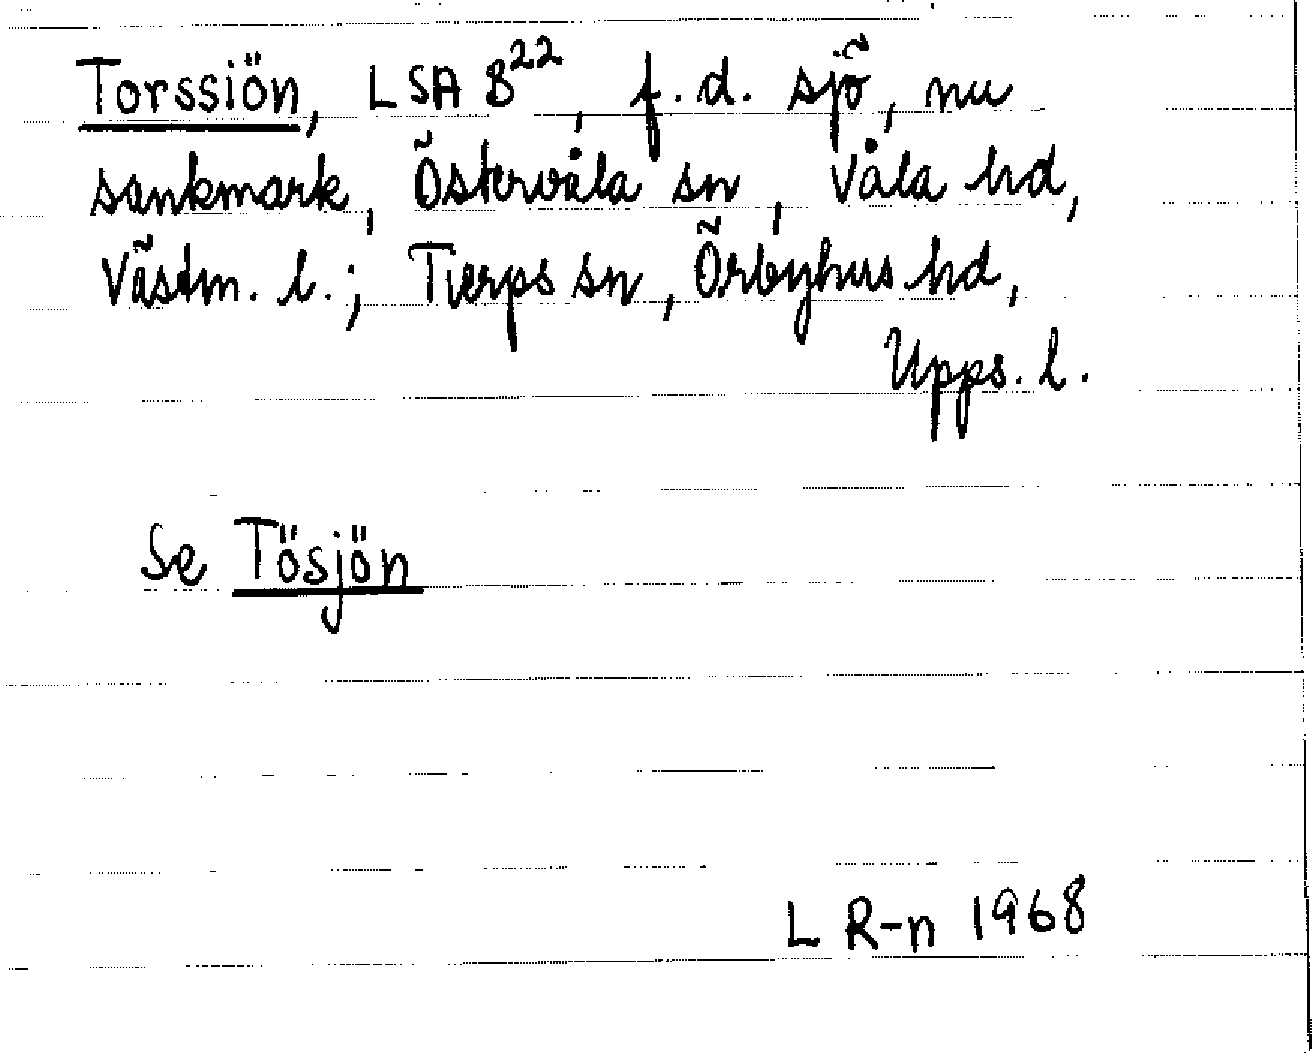 Torssiön, LSA B²², f.d. sjö, nu
sankmark, Östervåla sn, Våla hd,
Västm. l.; Tierps sn, Örbyhus hd,
Upps. l.
Se Tösjön
L R-n 1968